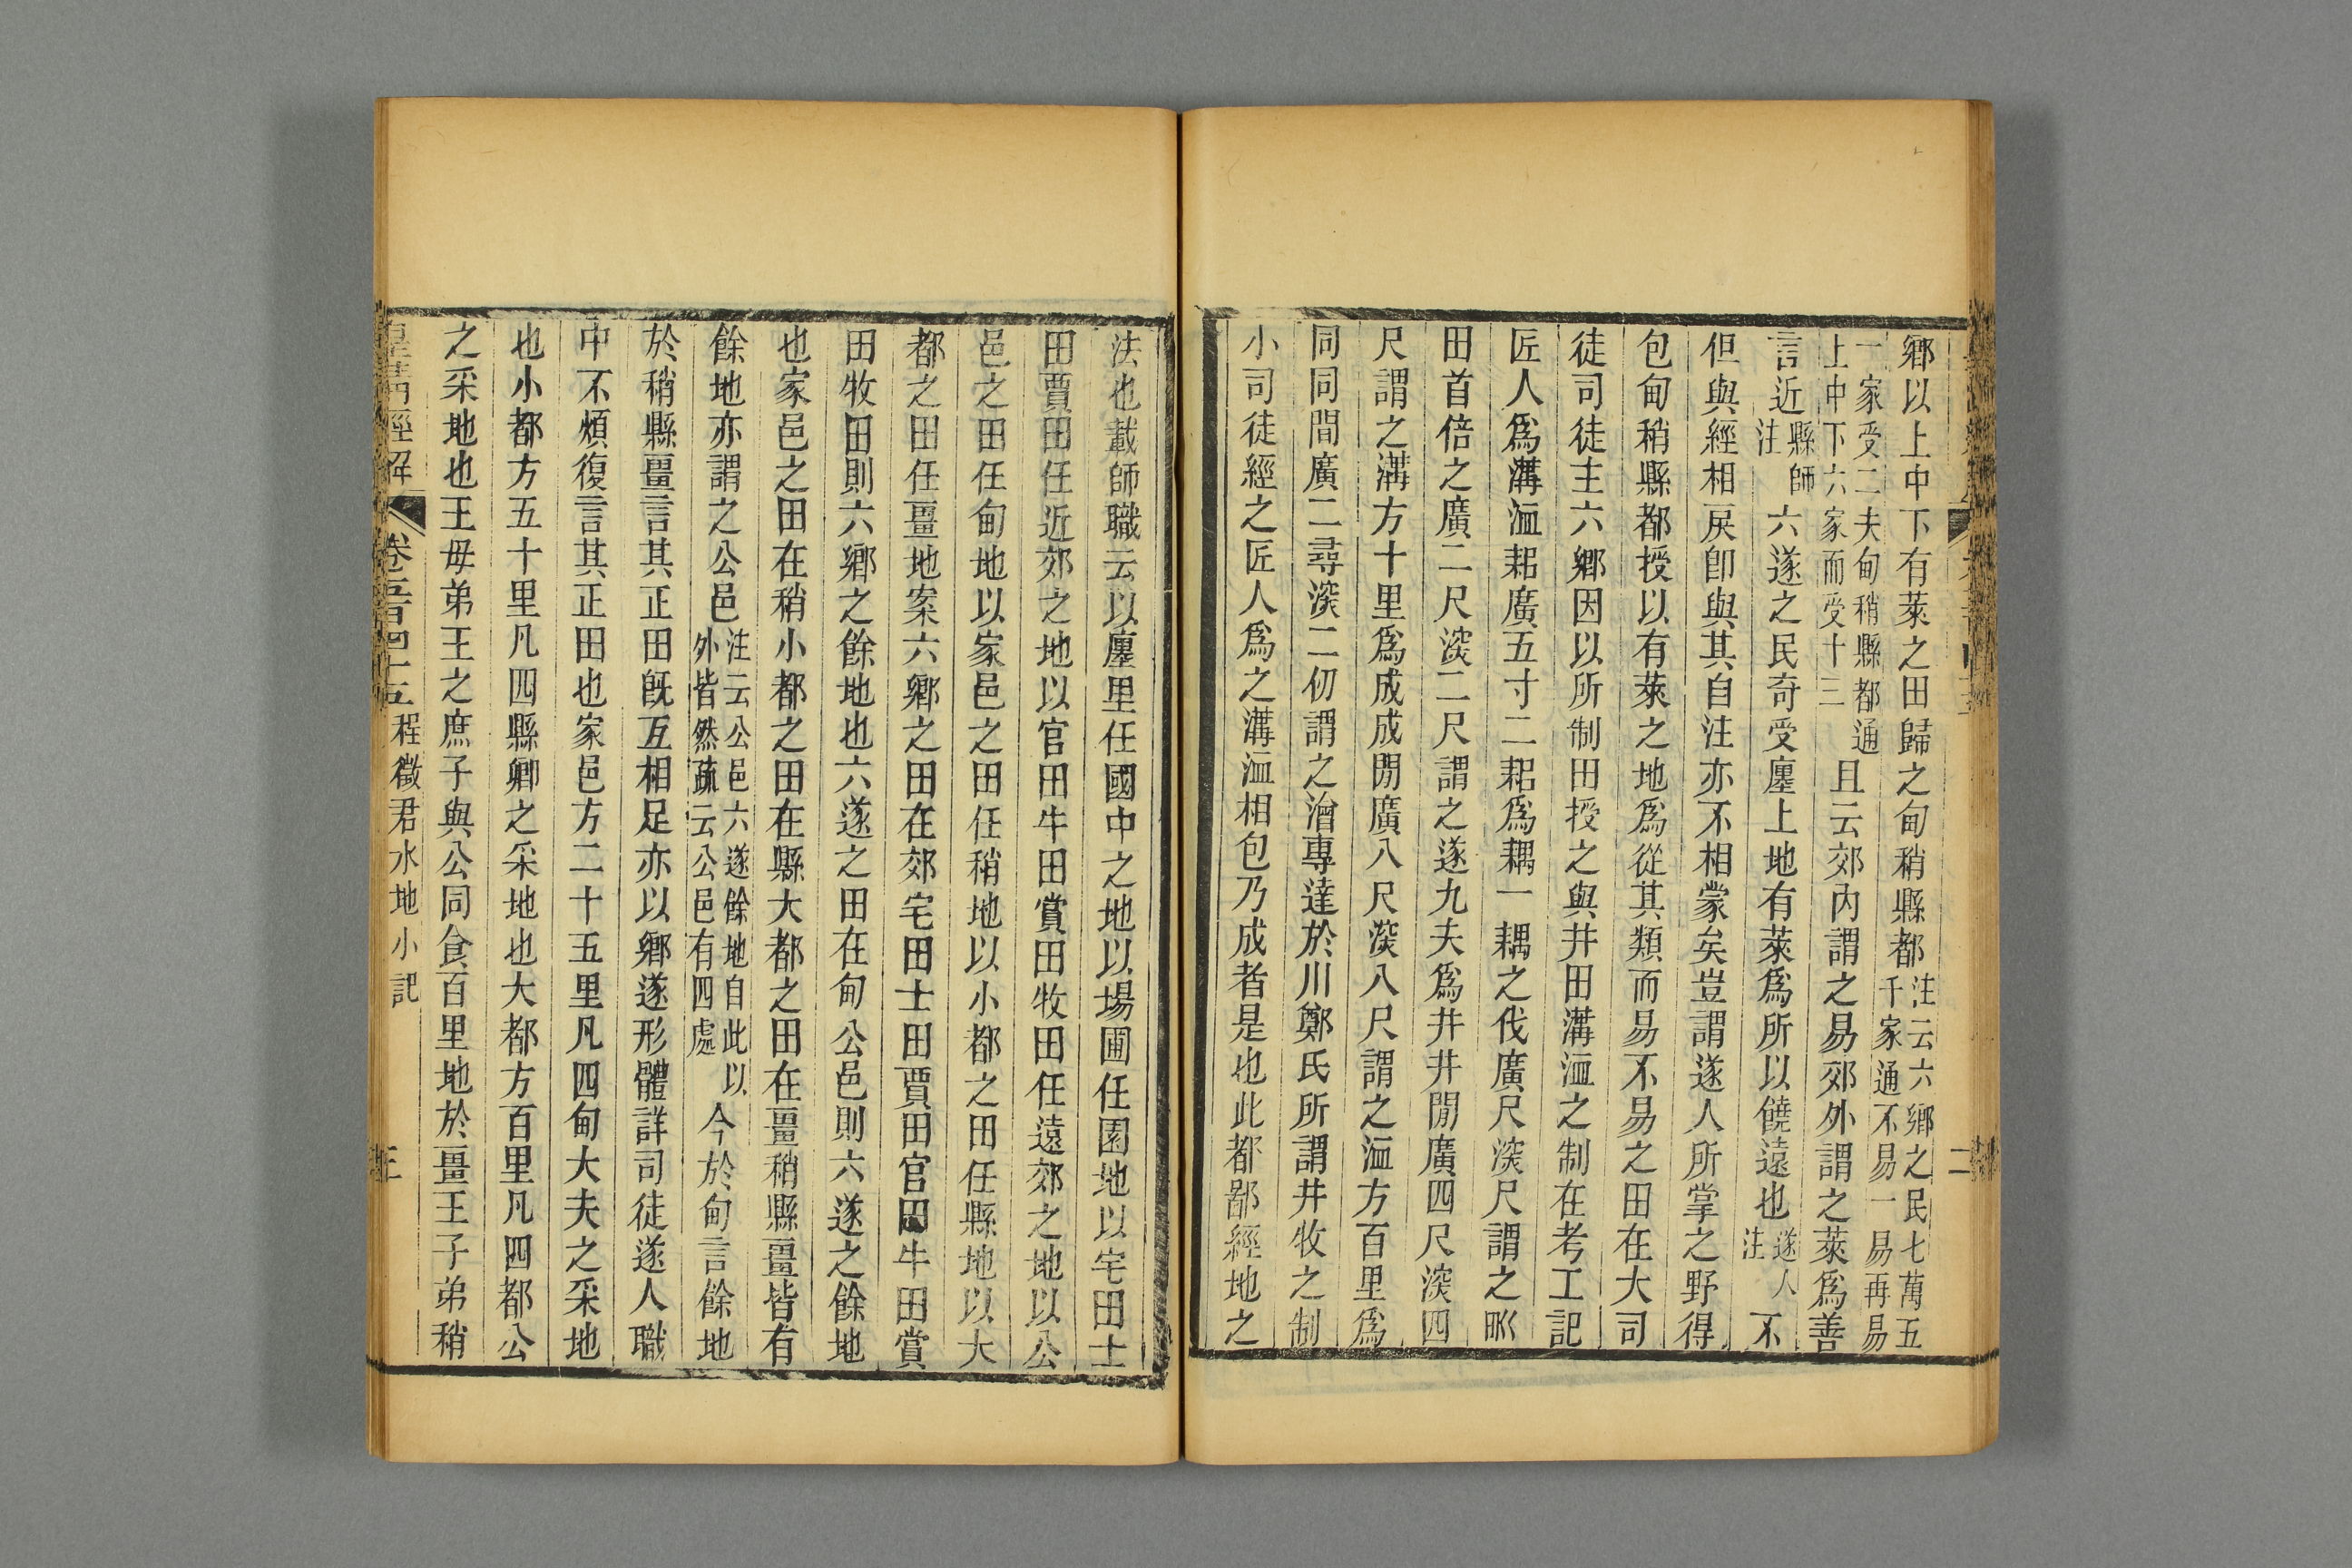 鄉以上中下有萊之田歸之甸稍縣都注云六鄉之民七萬五千家通不易一易再易
一家受二夫甸稍縣都通上中下六家而受十三且云郊內謂之易郊外謂之萊爲善
言近縣師注六遂之民奇受廛上地有萊爲所以饒遠也遂人注不
但與經相戾卽與其自注亦不相蒙矣豈謂遂人所掌之野得
包甸稍縣都授以有萊之地爲從其類而易不易之田在大司
徒司徒主六鄉因以所制田授之與井田溝洫之制在考工記
匠人爲溝洫耜廣五寸二耜爲耦一耦之伐廣尺深尺謂之𤰝
田首倍之廣二尺深二尺謂之遂九夫爲井井閒廣四尺深四
尺謂之溝方十里爲成成閒廣八尺深八尺謂之洫方百里爲
同同間廣二尋深二仞謂之澮專達於川鄭氏所謂井牧之制
小司徒經之匠人爲之溝洫相包乃成者是也此都鄙經地之
二
法也載師職云以廛里任國中之地以場圃任園地以宅田士
田賈田任近郊之地以官田牛田賞田牧田任遠郊之地以公
邑之田任甸地以家邑之田任稍地以小都之田任縣地以大
都之田任畺地案六鄉之田在郊宅田士田賈田官田牛田賞
田牧田則六鄉之餘地也六遂之田在甸公邑則六遂之餘地
也家邑之田在稍小都之田在縣大都之田在畺稍縣畺皆有
餘地亦謂之公邑注云公邑六遂餘地自此以外皆然疏云公邑有四處今於甸言餘地
於稍縣畺言其正田旣互相足亦以鄉遂形體詳司徒遂人職
中不煩復言其正田也家邑方二十五里凡四甸大夫之采地
也小都方五十里凡四縣卿之采地也大都方百里凡四都公
之采地也王母弟王之庶子與公同食百里地於畺王子弟稍
皇清經解 卷五百四十五 程徵君水地小記 三